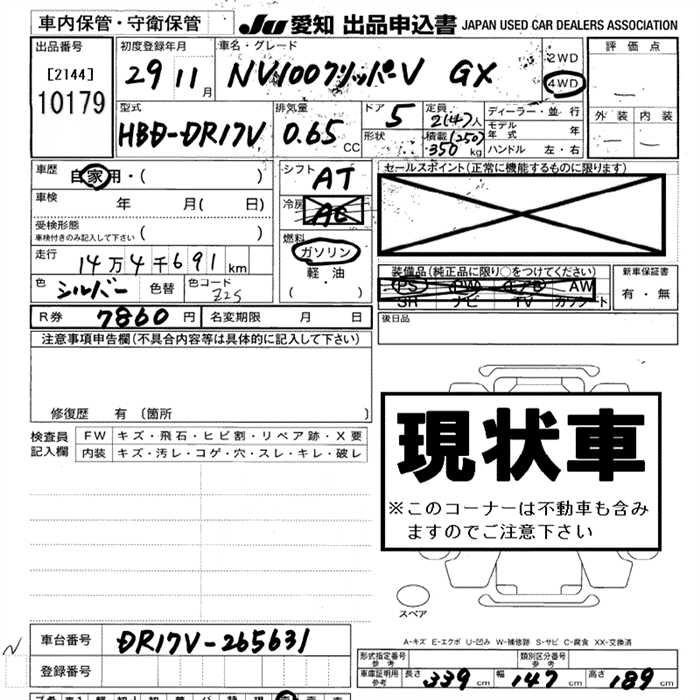 車内保管・守衛保管
JU 愛知 出品申込書 JAPAN USED CAR DEALERS ASSOCIATION
出品番号 初度登録年月 車名・グレード 2WD 評価点
[2144] 29 11月 NV100クリッパーV GX 4WD
10179
型式 排気量 ドア 5 定員 2(4)人 ディーラー・並行 外装 内装
HBD-DR17V 0.65CC 形状 積載 (250) 350kg モデル年式 年
ハンドル 左・右
車歴 自家用・( ) シフト AT セールスポイント(正常に機能するものに限ります)
車検 年 月( 日) 冷房 AC
受検形態 ( )
車検付きのみ記入して下さい
燃料 ガソリン
走行 14万4千691km 軽油 装備品(純正品に限り○をつけてください) 新車保証書
色 シルバー 色替 色コード Z2S ( ) PS PW エアB AW 有・無
SR ナビ TV カワシート
R券 7860円 名変期限 月 日 後日品
注意事項申告欄(不具合内容等は具体的に記入して下さい)
修復歴 有〔箇所 〕
検査員記入欄 FW キズ・飛石・ヒビ割・リペア跡・X要
内装 キズ・汚レ・コゲ・穴・スレ・キレ・破レ
現状車
※このコーナーは不動車も含み
ますのでご注意下さい
スペア
A-キズ E-エクボ U-凹み W-補修跡 S-サビ C-腐食 XX-交換済
車台番号 DR17V-265631
登録番号
形式指定番号 参考 類別区分番号 参考
車庫証明用 参考 長さ 339cm 幅 147cm 高さ 189cm